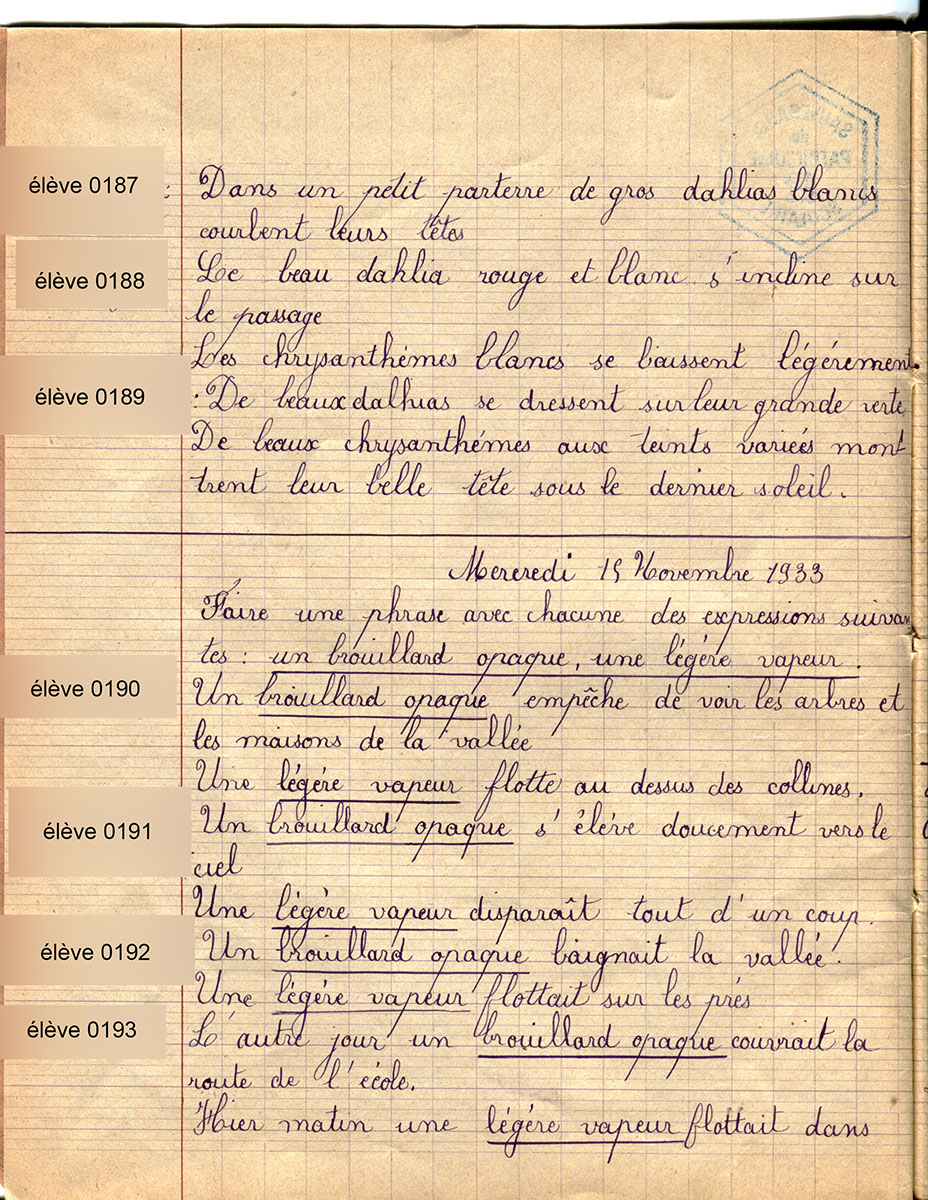 élève 0187 : Dans un petit parterre de gros dahlias blancs
courbent leurs têtes
élève 0188 Le beau dahlia rouge et blanc s'incline sur
le passage
Les chrysanthémes blancs se baissent légérement.
élève 0189 : De beaux dalhias se dressent sur leur grande verte
De beaux chrysanthémes aux teints variées mon-
trent leur belle tête sous le dernier soleil.
Mercredi 15 Novembre 1933
Faire une phrase avec chacune des expressions suivan
tes : un brouillard opaque, une légére vapeur.
élève 0190 Un brouillard opaque empêche de voir les arbres et
les maisons de la vallée
Une légére vapeur flotte au dessus des collines.
élève 0191 Un brouillard opaque s'éléve doucement vers le
ciel
Une légère vapeur disparaît tout d'un coup.
élève 0192 Un brouillard opaque baignait la vallée.
Une légére vapeur flottait sur les prés
élève 0193 L'autre jour un brouillard opaque couvrait la
route de l'école.
Hier matin une légére vapeur flottait dans